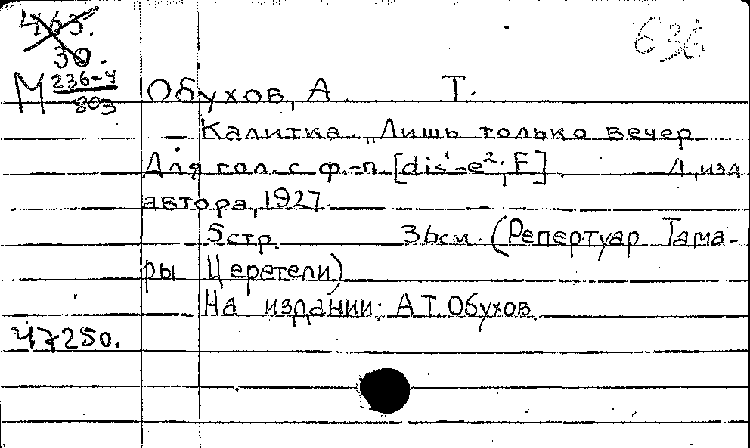 463.
30.
636
М 236-4
803
Обухов, А. Т.
— Калитка. „Лишь только вечер
Для гол. с ф.-п. [dis¹-e²; F]. Л, изд
автора, 1927
5 стр. 36 см. (Репертуар Тама-
ры Церетели)
На издании: А.Т. Обухов.
47250.